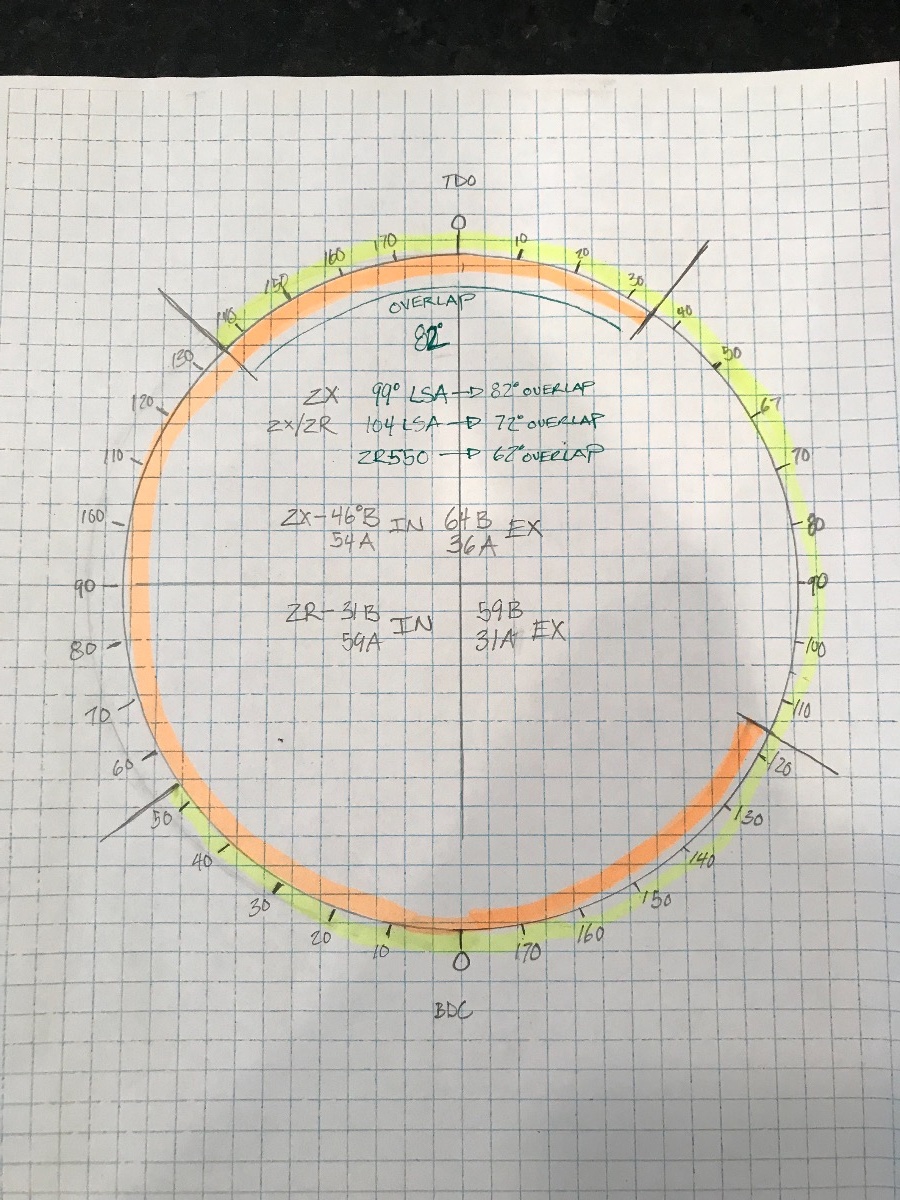 TDO
0
10
20
30
40
50
67
70
80
90
100
110
120
130
140
150
160
170
0
BDC
10
20
30
40
50
60
70
80
90
160
110
120
130
140
150
160
170
OVERLAP
82°
ZX 99° LSA → 82° OVERLAP
ZX/ZR 104 LSA → 72° OVERLAP
ZR550 → 62° OVERLAP
ZX-46°B IN 64B EX
54A 36A
ZR-31B IN 59B EX
59A 31A